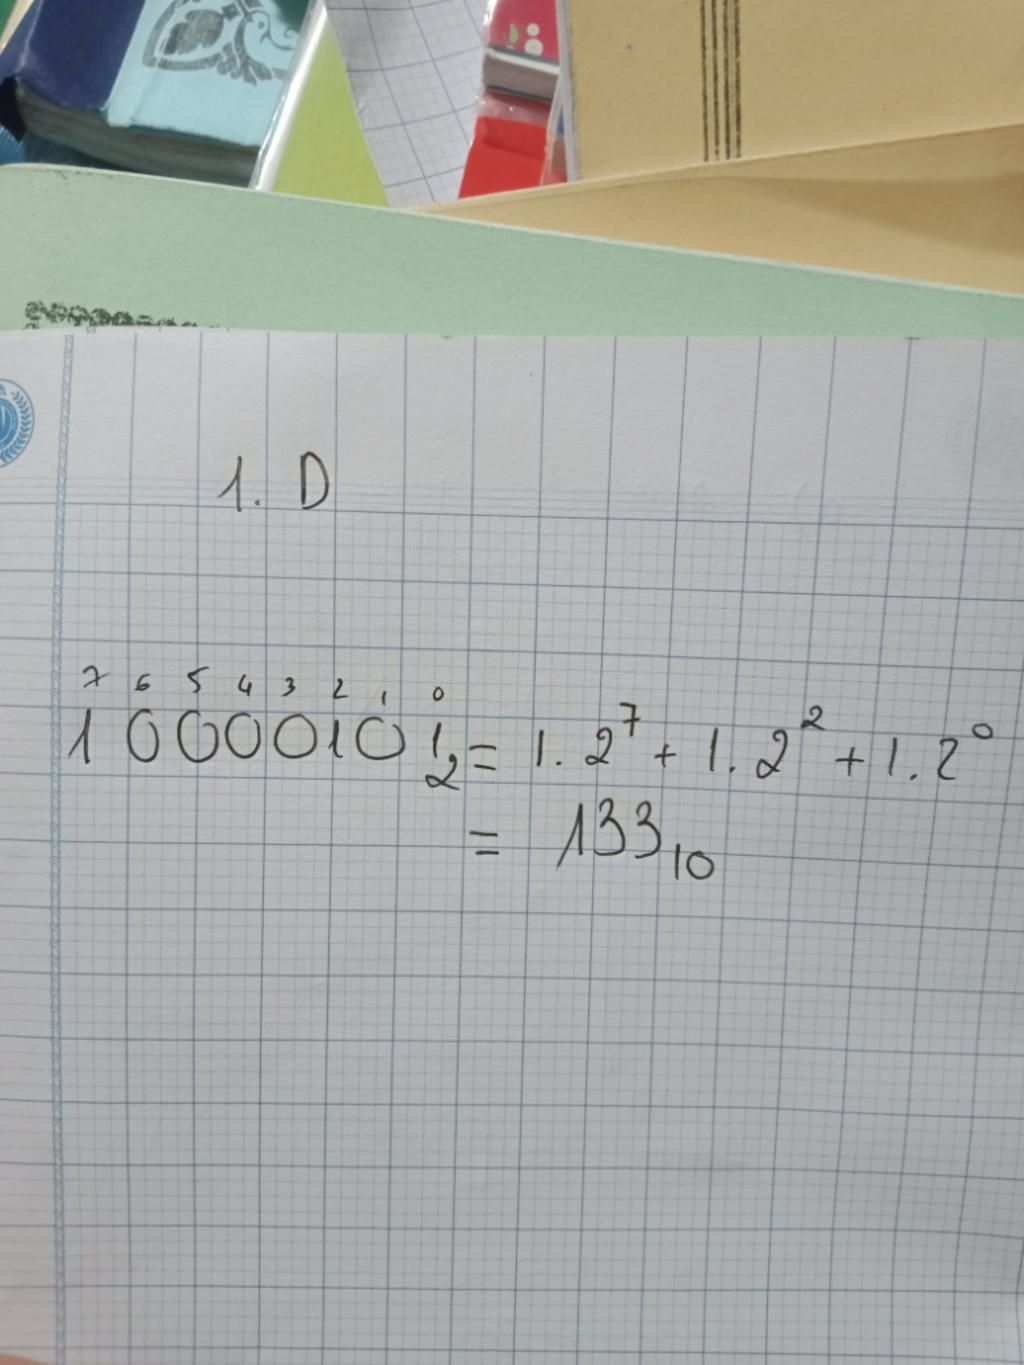 1. D
7 6 5 4 3 2 1 0
10000101₂ = 1.2⁷ + 1.2² + 1.2⁰
= 133₁₀